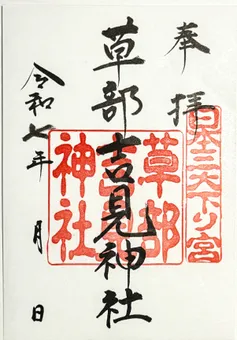 奉拝
日本三大下り宮
草部吉見神社
草部
神社
令和七年 月 日